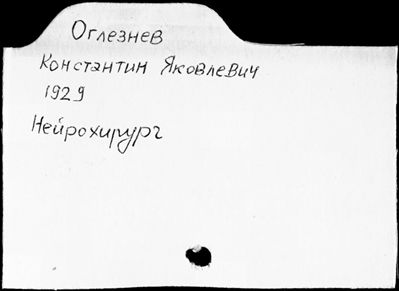 Оглезнев
Константин Яковлевич
1929
Нейрохирург